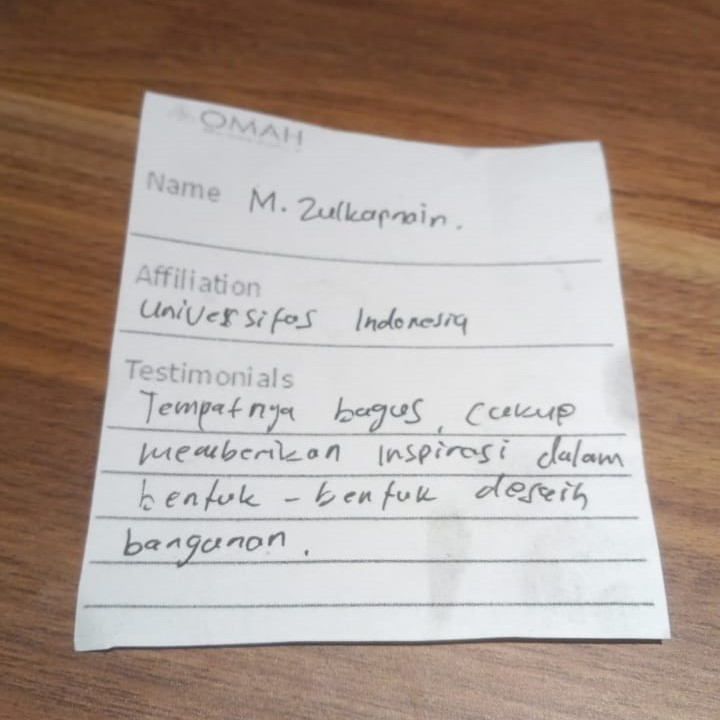 OMAH
Name M. Zulkapnain.
Affiliation
Universitas Indonesia
Testimonials
Tempatnya bagus, cukup
memberikan inspirasi dalam
bentuk - bentuk desain
bangunan.